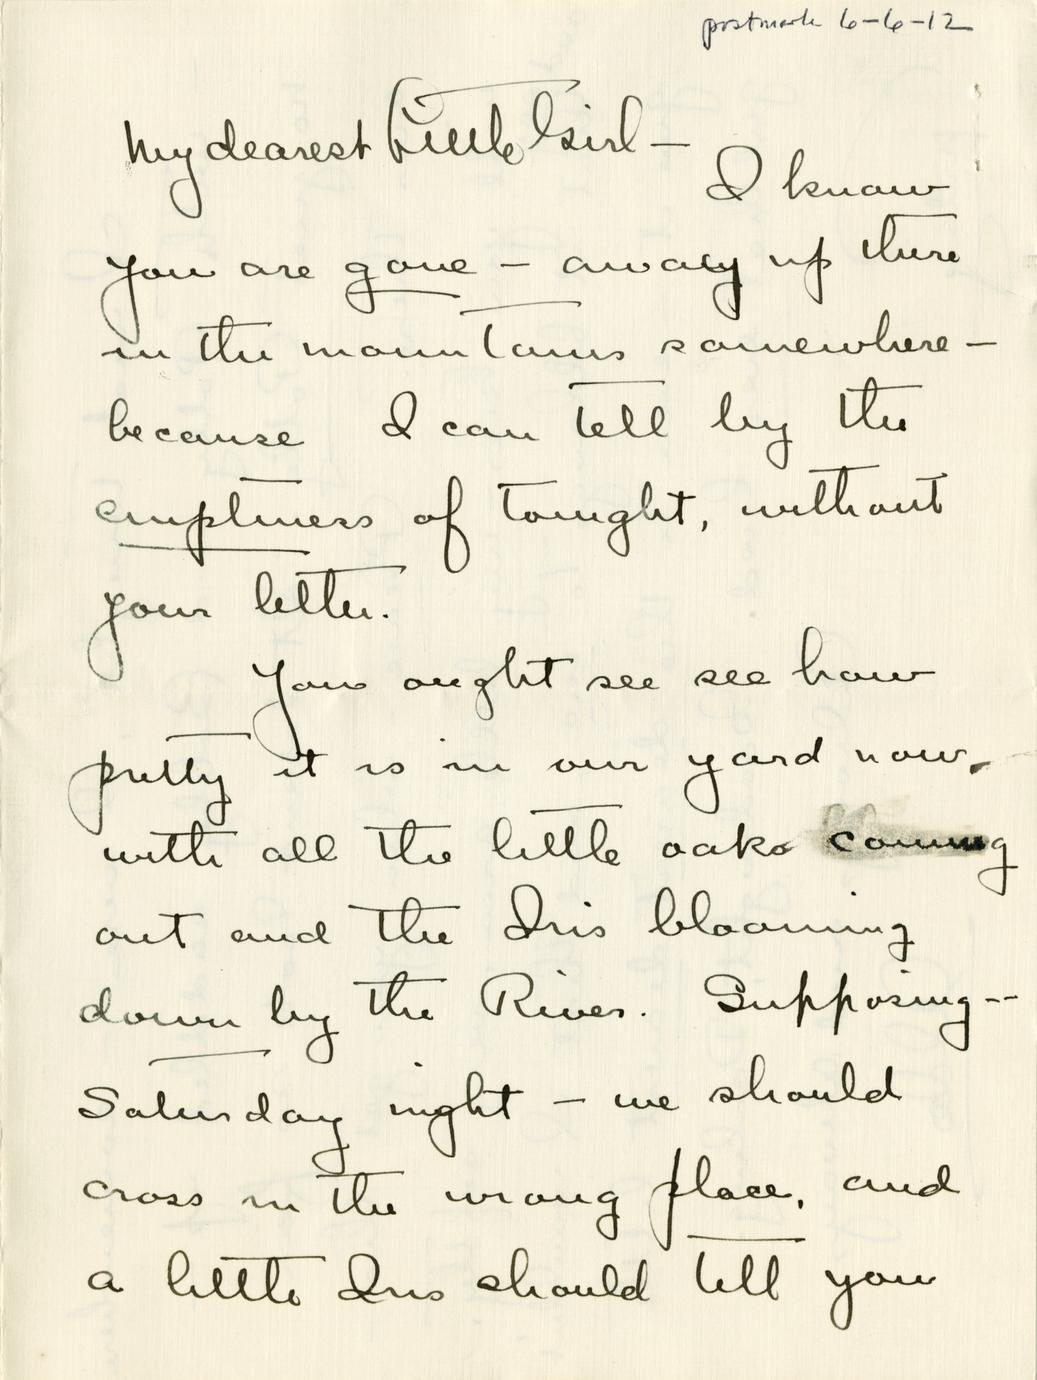 postmark 6-6-12
My dearest Little Girl—
I know
you are gone — away up there
in the mountains somewhere —
because I can tell by the
emptiness of tonight, without
your letter.
You ought see see how
pretty it is in our yard now,
with all the little oaks coming
out and the Iris blooming
down by the River. Supposing--
Saturday night — we should
cross in the wrong place, and
a little Iris should tell you